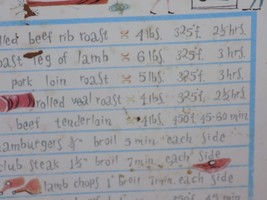 lled beef rib roast × 4 lbs. 325°f. 2½ hrs.
oast leg of lamb × 6 lbs 325°f. 3 hrs.
pork loin roast × 5 lbs 325°f. 3 hrs.
rolled veal roast × 4 lbs. 325°f. 2½ hrs
beef tenderloin 4 lbs. 450°f 45-60 min
hamburgers ¾" broil 5 min. each side
club steak 1½" broil 7 min. each side
lamb chops 1" broil 7 min. each side